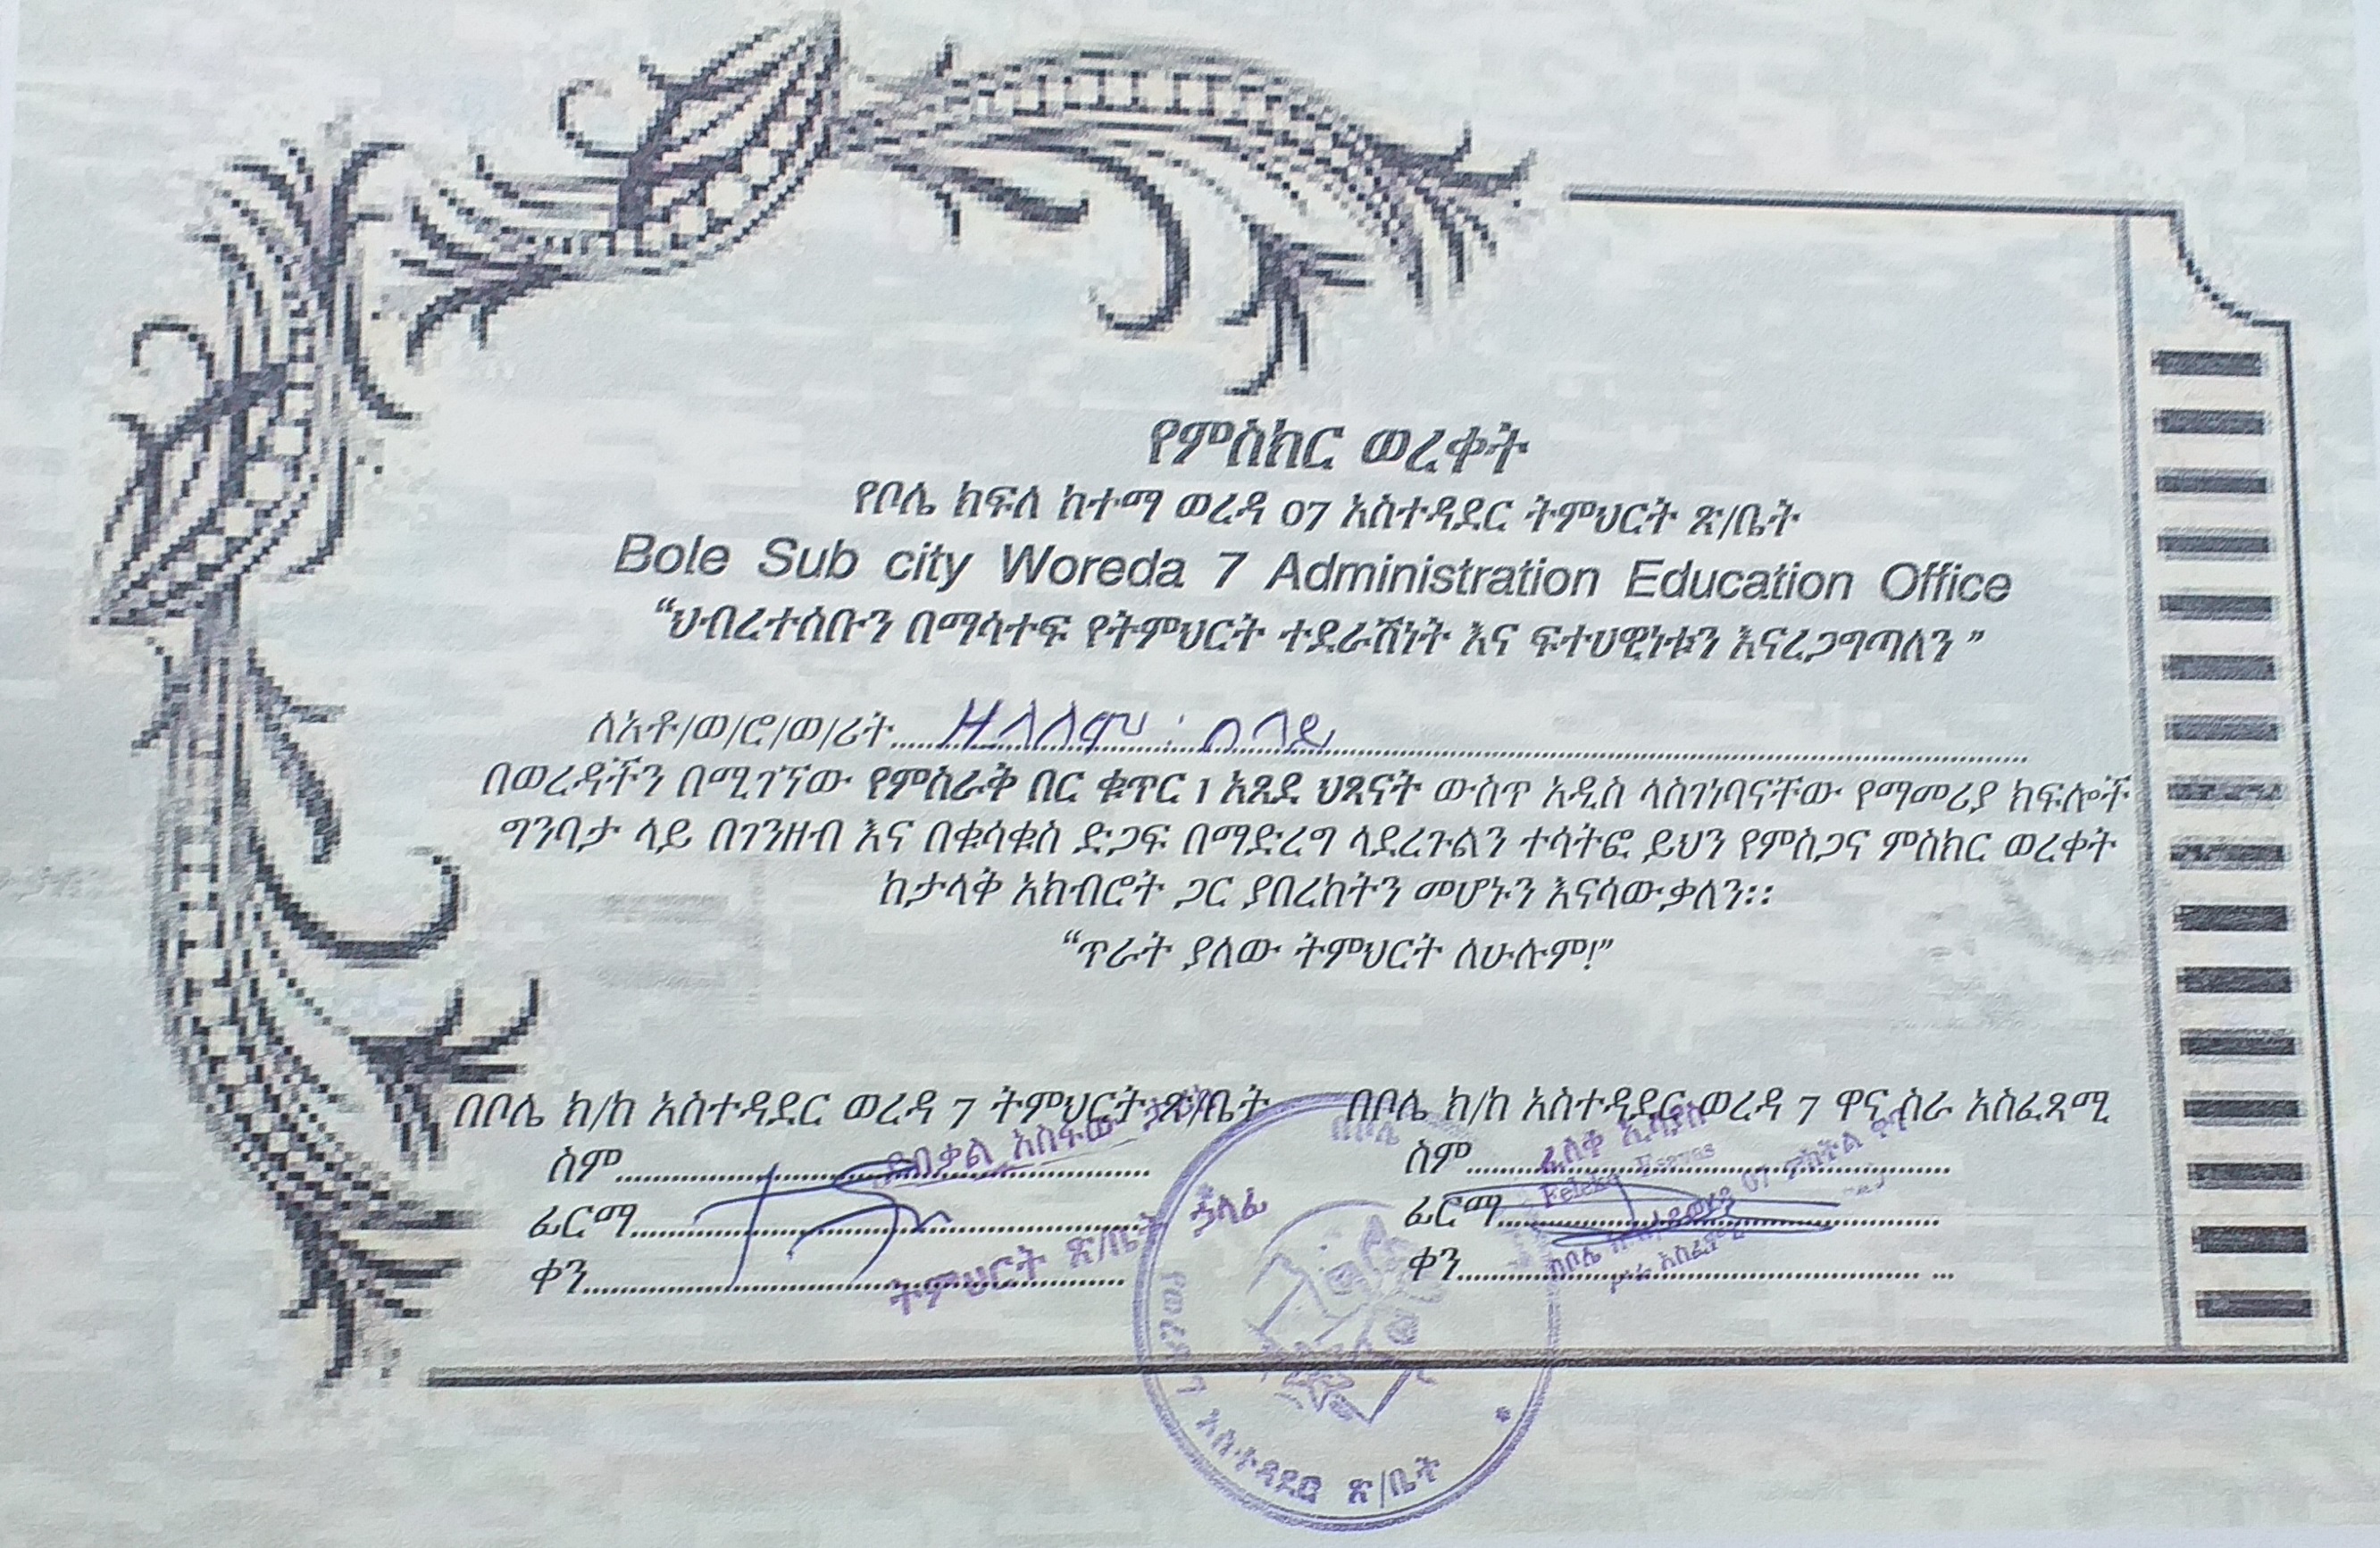 የምስክር ወረቀት
የቦሌ ክፍለ ከተማ ወረዳ 07 አስተዳደር ትምህርት ጽ/ቤት
Bole Sub city Woreda 7 Administration Education Office
“ህብረተሰቡን በማሳተፍ የትምህርት ተደራሽነት እና ፍተሀዊነቱን እናረጋግጣለን ”
ለአቶ/ወ/ሮ/ወ/ሪት
በወረዳችን በሚገኘው የምስራቅ በር ቁጥር 1 አጸደ ህጻናት ውስጥ አዲስ ላስገነባናቸው የማመሪያ ክፍሎች
ግንባታ ላይ በገንዘብ እና በቁሳቁስ ድጋፍ በማድረግ ላደረጉልን ተሳትፎ ይህን የምስጋና ምስክር ወረቀት
ከታላቅ አክብሮት ጋር ያበረከትን መሆኑን እናሳውቃለን፡፡
“ጥራት ያለው ትምህርት ለሁሉም!”
በቦሌ ክ/ከ አስተዳደር ወረዳ 7 ትምህርት ጽ/ቤት
ስም
ፊርማ
ቀን
ትምህርት ጽ/ቤት ኃላፊ
በቦሌ ክ/ከ አስተዳደር ወረዳ 7 ዋና ስራ አስፈጻሚ
ስም
ፊርማ
ቀን
የወረዳ 7 አስተዳደር ጽ/ቤት